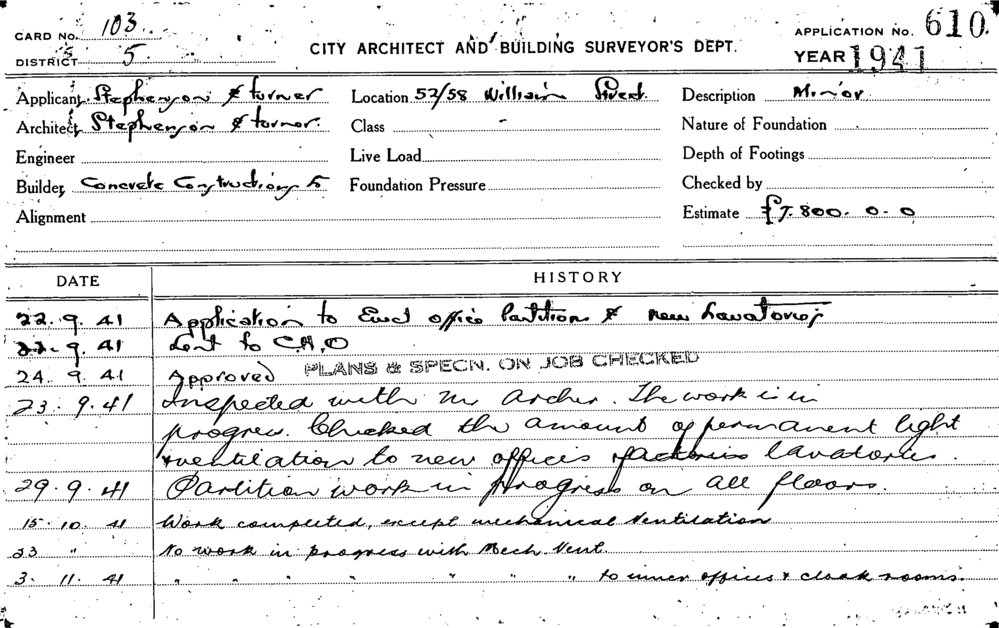 CARD No. 103
DISTRICT 5
CITY ARCHITECT AND BUILDING SURVEYOR'S DEPT.
APPLICATION No. 610
YEAR 1941
Applicant Stephenson & Turner
Architect Stephenson & Turner.
Engineer
Builder Concrete Constructions
Alignment
Location 52/58 William Street.
Class -
Live Load
Foundation Pressure
Description Minor.
Nature of Foundation
Depth of Footings
Checked by
Estimate £7.800. 0. 0
DATE HISTORY
22. 9. 41 Application to Erect office Partitions & new Lavatories
22. 9. 41 Sent to C.H.O
24. 9. 41 Approved PLANS & SPECN. ON JOB CHECKED
23. 9. 41 Inspected with Mr Archer. The work is in
progress. Checked the amount of permanent light
& ventilation to new offices lavatories.
29. 9. 41 Partition work in progress on all floors.
15. 10. 41 Work completed, except mechanical Ventilation
23 " No work in progress with Mech. Vent.
3. 11. 41 " " " " " " to inner offices & cloak rooms.